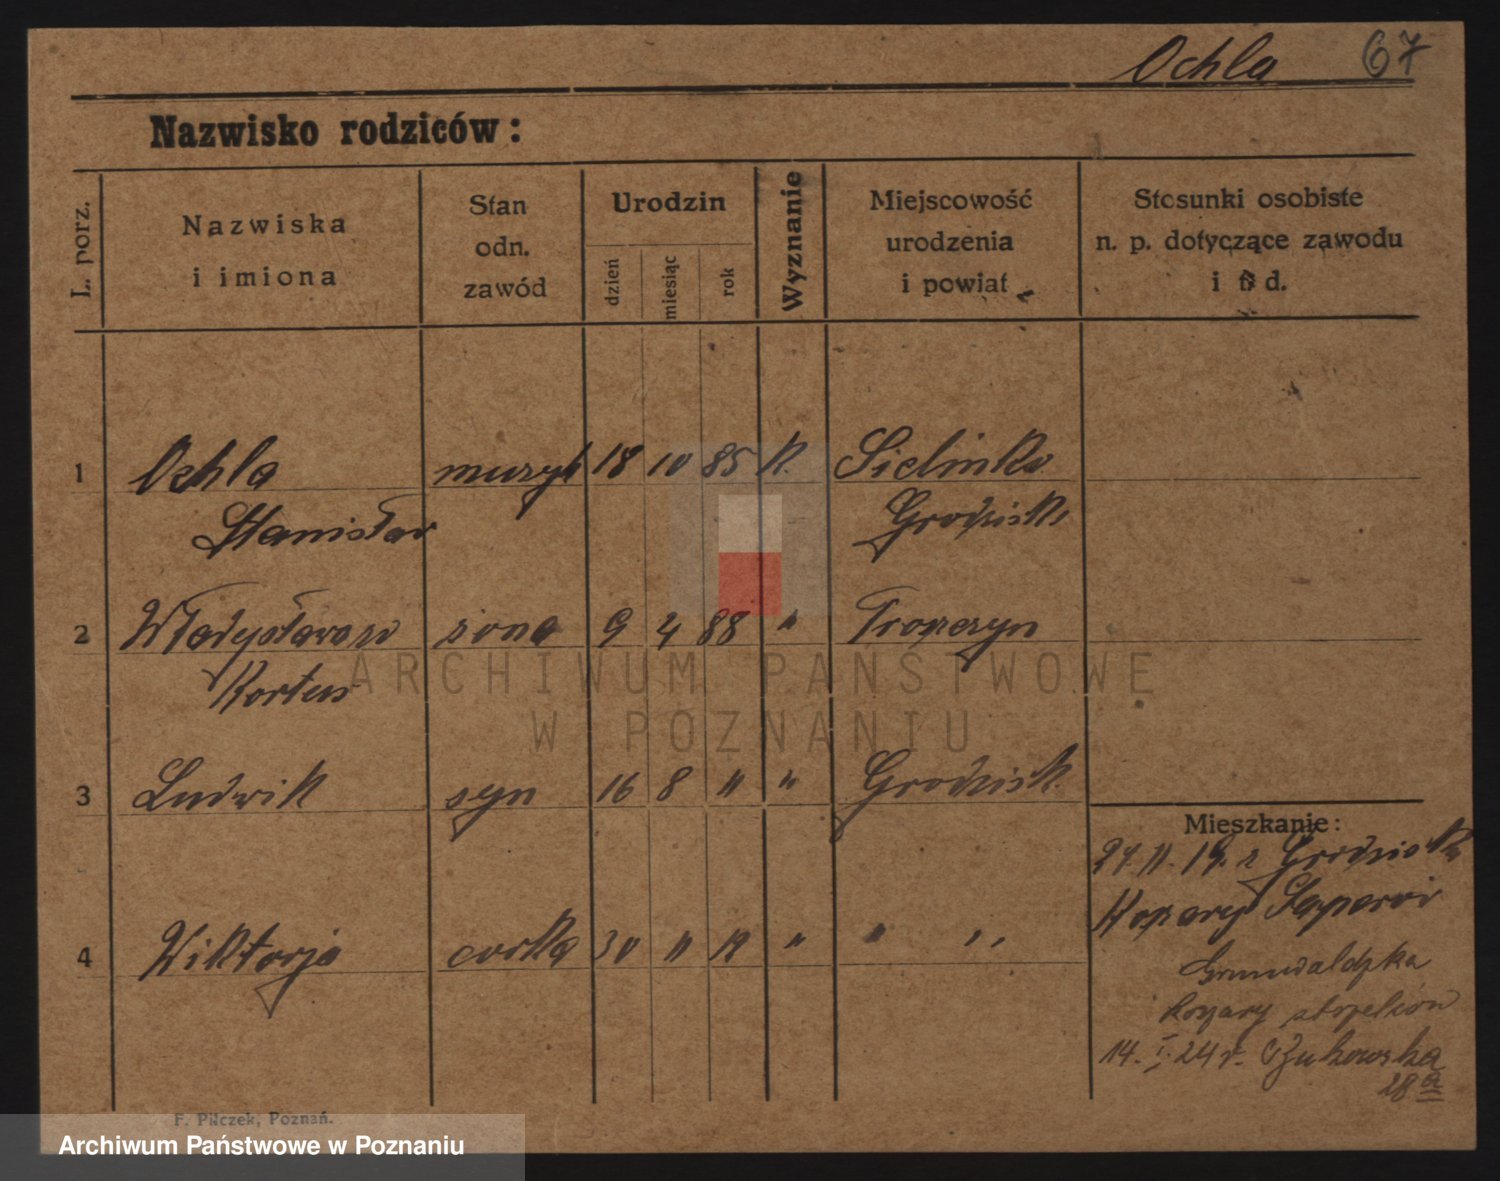 Ochla 67
Nazwisko rodziców:
L. porz.
Nazwiska
i imiona
Stan
odn.
zawód
Urodzin
dzień
miesiąc
rok
Wyznanie
Miejscowość
urodzenia
i powiat
Stosunki osobiste
n. p. dotyczące zawodu
i t. d.
1 Ochla muzyk 18 10 85 k. Sielinko
Stanisław Grodzisk
2 żona 9 4 88 "
Kortus
3 Ludwik syn 16 8 " " Grodzisk
Mieszkanie:
Grodziska
Koszary Saperów
4 Wiktorja córka 30 " 19 " " "
Grunwaldzka
Koszary
14. I. 24 r.
28 a
F. Pilczek, Poznań.
ARCHIWUM PAŃSTWOWE
W POZNANIU
Archiwum Państwowe w Poznaniu